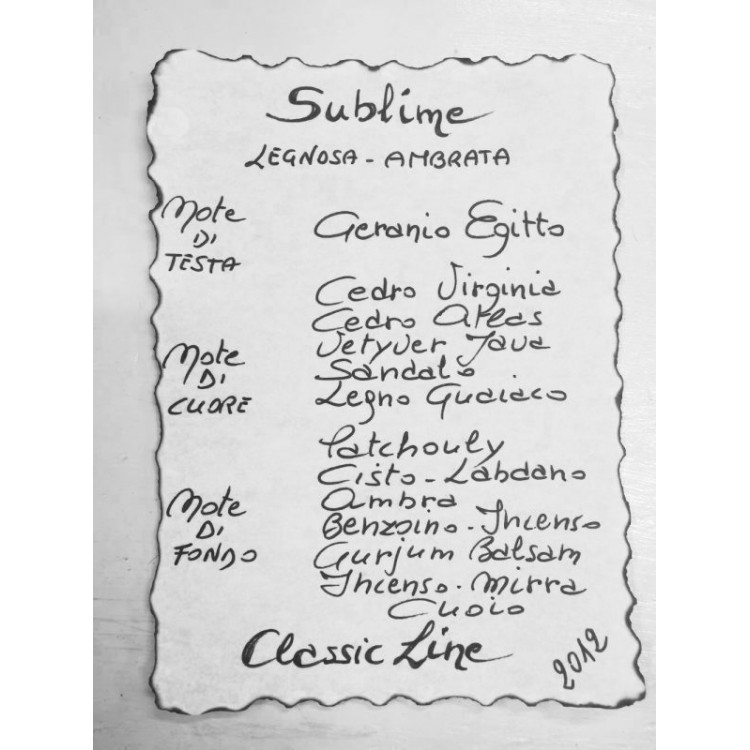 Sublime
LEGNOSA - AMBRATA
Note
DI
TESTA
Geranio Egitto
Note
DI
CUORE
Cedro Virginia
Cedro Atlas
Vetyver Java
Sandalo
Legno Guaiaco
Note
DI
FONDO
Patchouly
Cisto - Labdano
Ambra
Benzoino - Incenso
Gurjum Balsam
Incenso - Mirra
Cuoio
Classic Line
2012